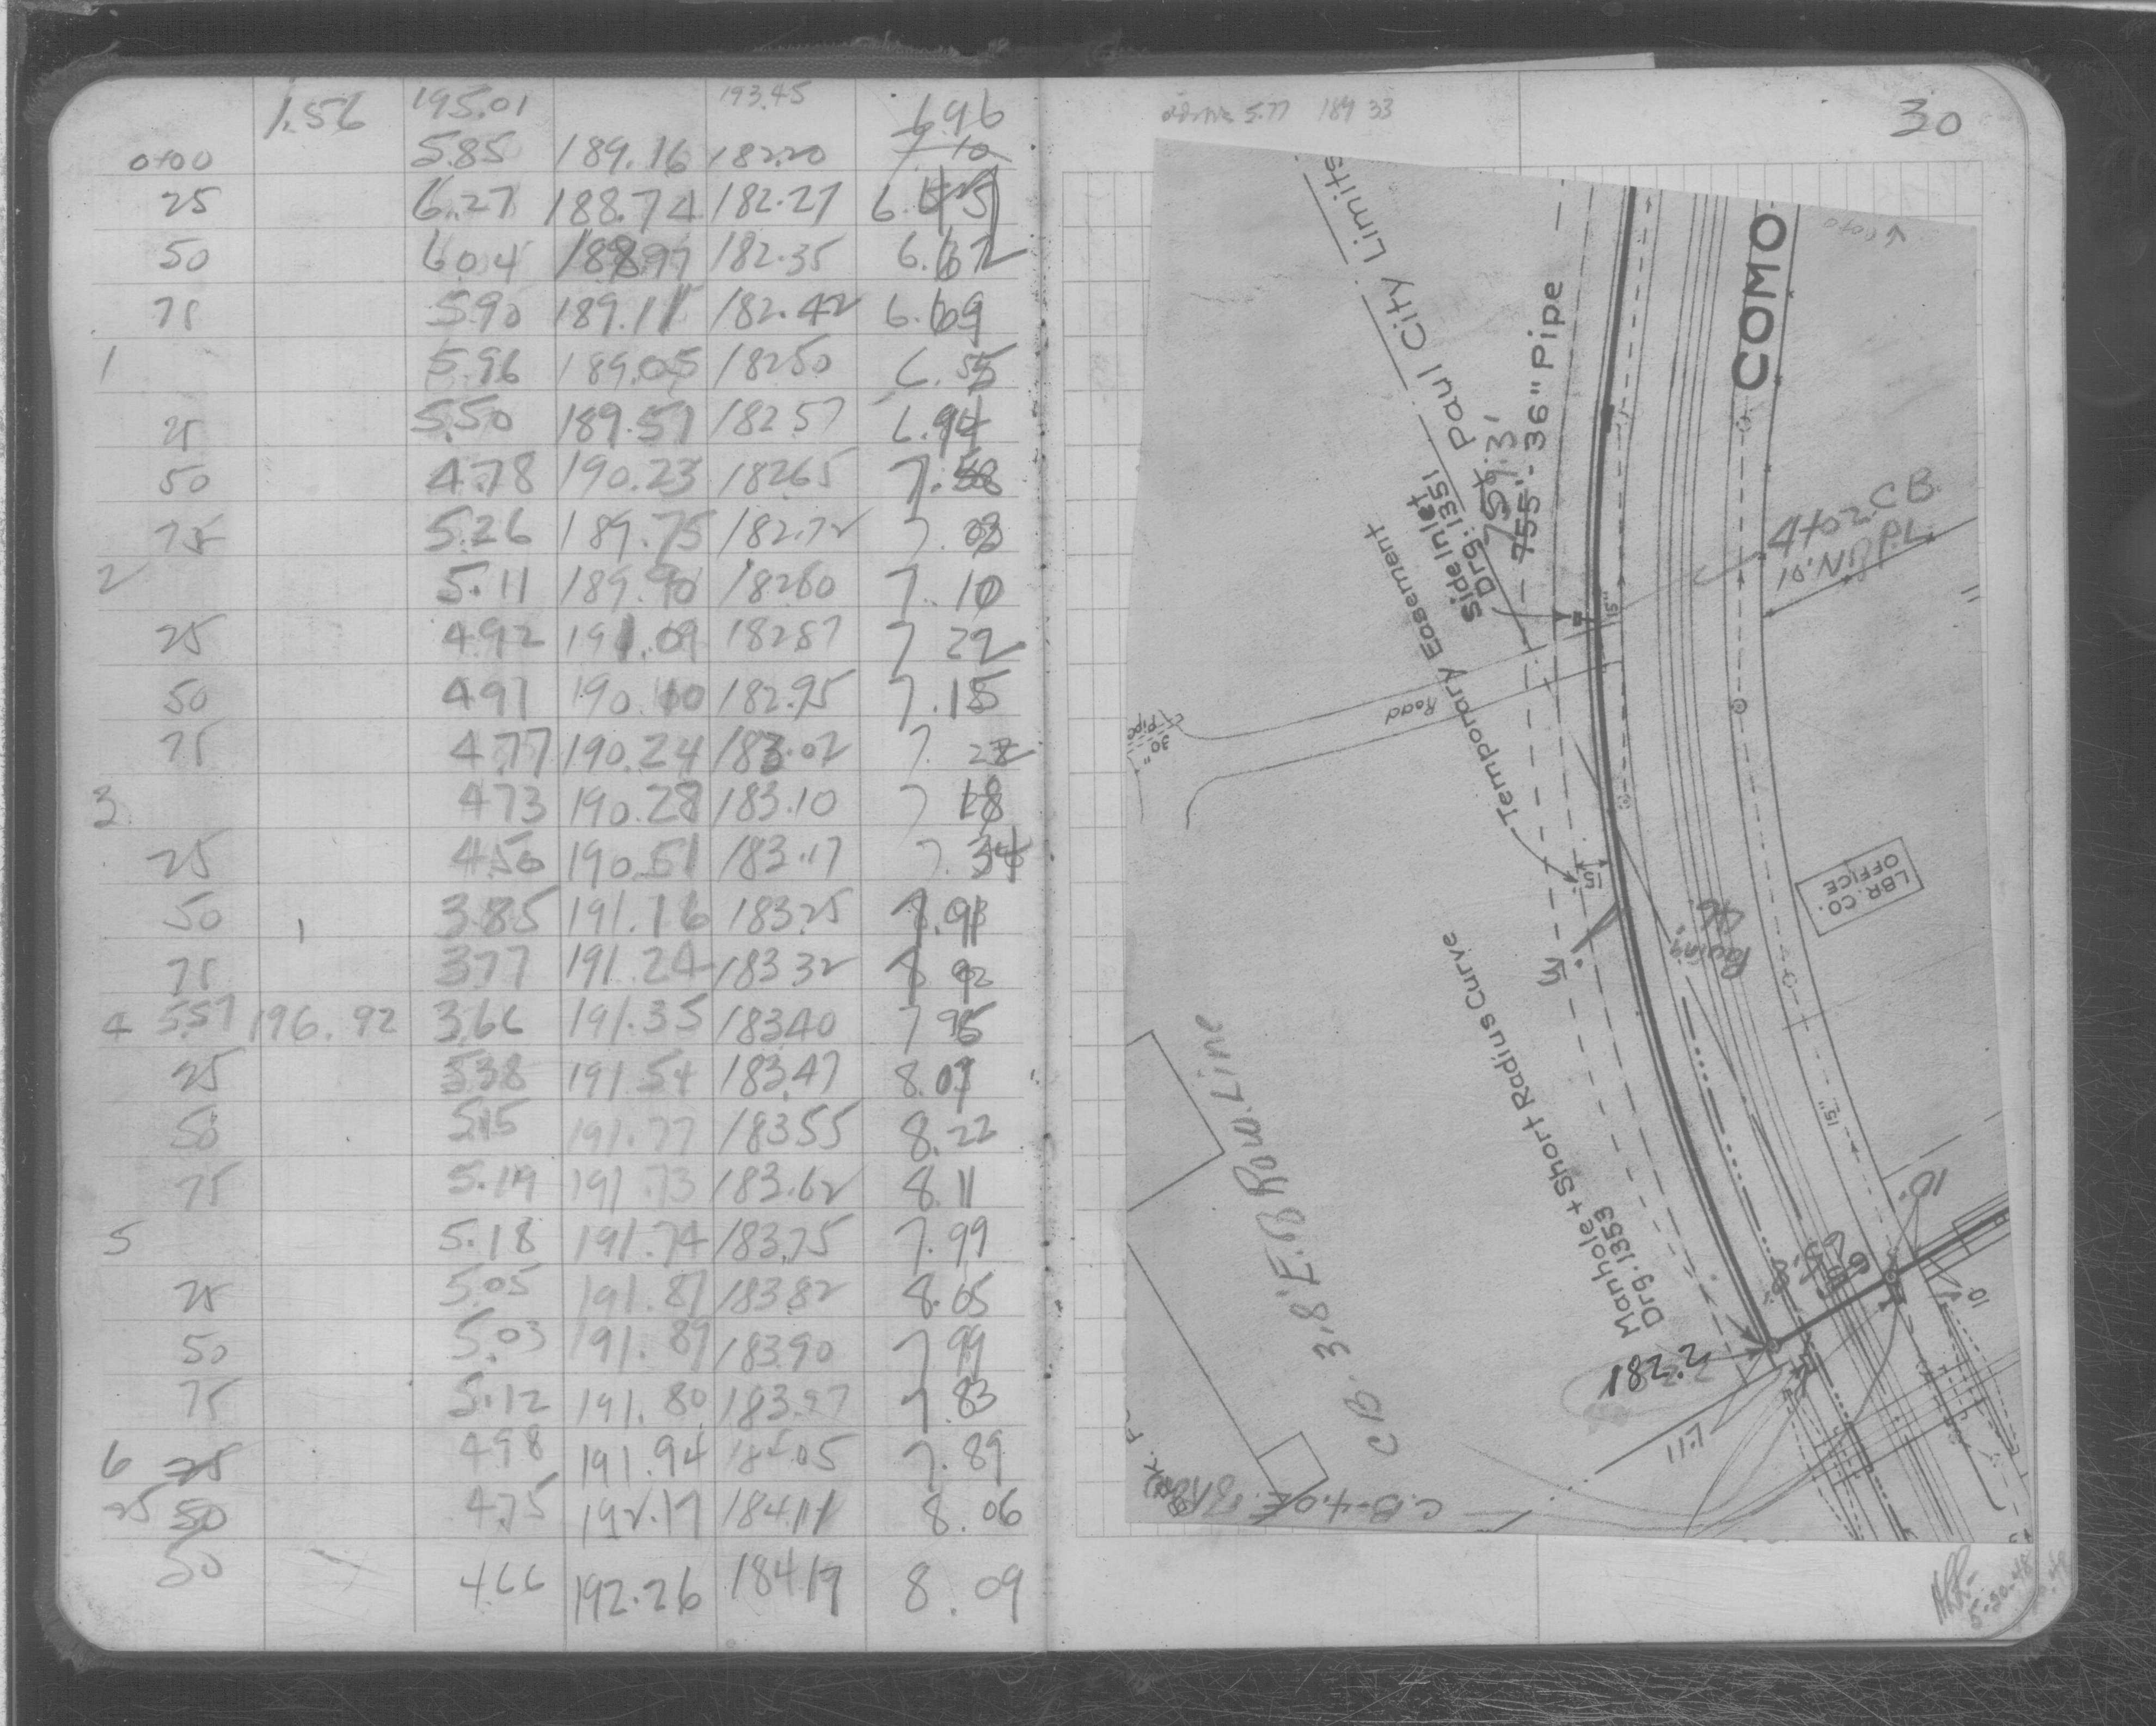 1.56 195.01 193.45 6.96
0+00 5.85 189.16 182.20
25 6.27 188.74 182.27
50 6.04 188.97 182.35 6.62
75 5.90 189.11 182.42 6.69
1 5.96 189.05 182.50 6.55
25 5.50 189.51 182.57 6.94
50 4.78 190.23 182.65 7.58
75 5.26 189.75 182.72 7.03
2 5.11 189.90 182.80 7.10
25 4.92 191.09 182.87 7.22
50 4.91 190.10 182.95 7.15
75 4.77 190.24 183.02 7.22
3 4.73 190.28 183.10 7.18
25 4.50 190.51 183.17 7.34
50 3.85 191.16 183.25 7.91
75 3.77 191.24 183.32 7.92
4 5.57 196.92 3.66 191.35 183.40 7.95
25 5.38 191.54 183.47 8.07
50 5.15 191.77 183.55 8.22
75 5.19 191.73 183.62 8.11
5 5.18 191.74 183.75 7.99
25 5.05 191.87 183.82 8.05
50 5.03 191.89 183.90 7.99
75 5.12 191.80 183.97 7.83
6 25 4.98 191.94 184.05 7.89
25 50 4.75 192.17 184.11 8.06
50 4.66 192.26 184.19 8.09
5.77 189 33
30
Paul City Limits
COMO
0+00
755'- 36" Pipe
759.3'
Side Inlet
Drg. 1351
Temporary Easement
4+02 C B
10' N of P.L.
15"
Road
30" Pipe
15'
LBR. CO.
OFFICE
Paving
46'
Manhole + Short Radius Curve
Drg. 1353
C.B. 3.8' E. of R.o.w. Line
15"
10'
10'
2.281
L-11
C.B.-4.0 E. of
5-20-48